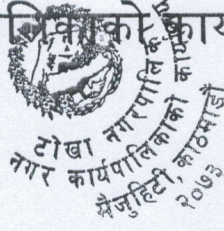 लिकाको कार्य
टोखा नगरपालिका
नगर कार्यपालिकाको कार्यालय
भैजुहिटी, काठमाडौं
२०७३